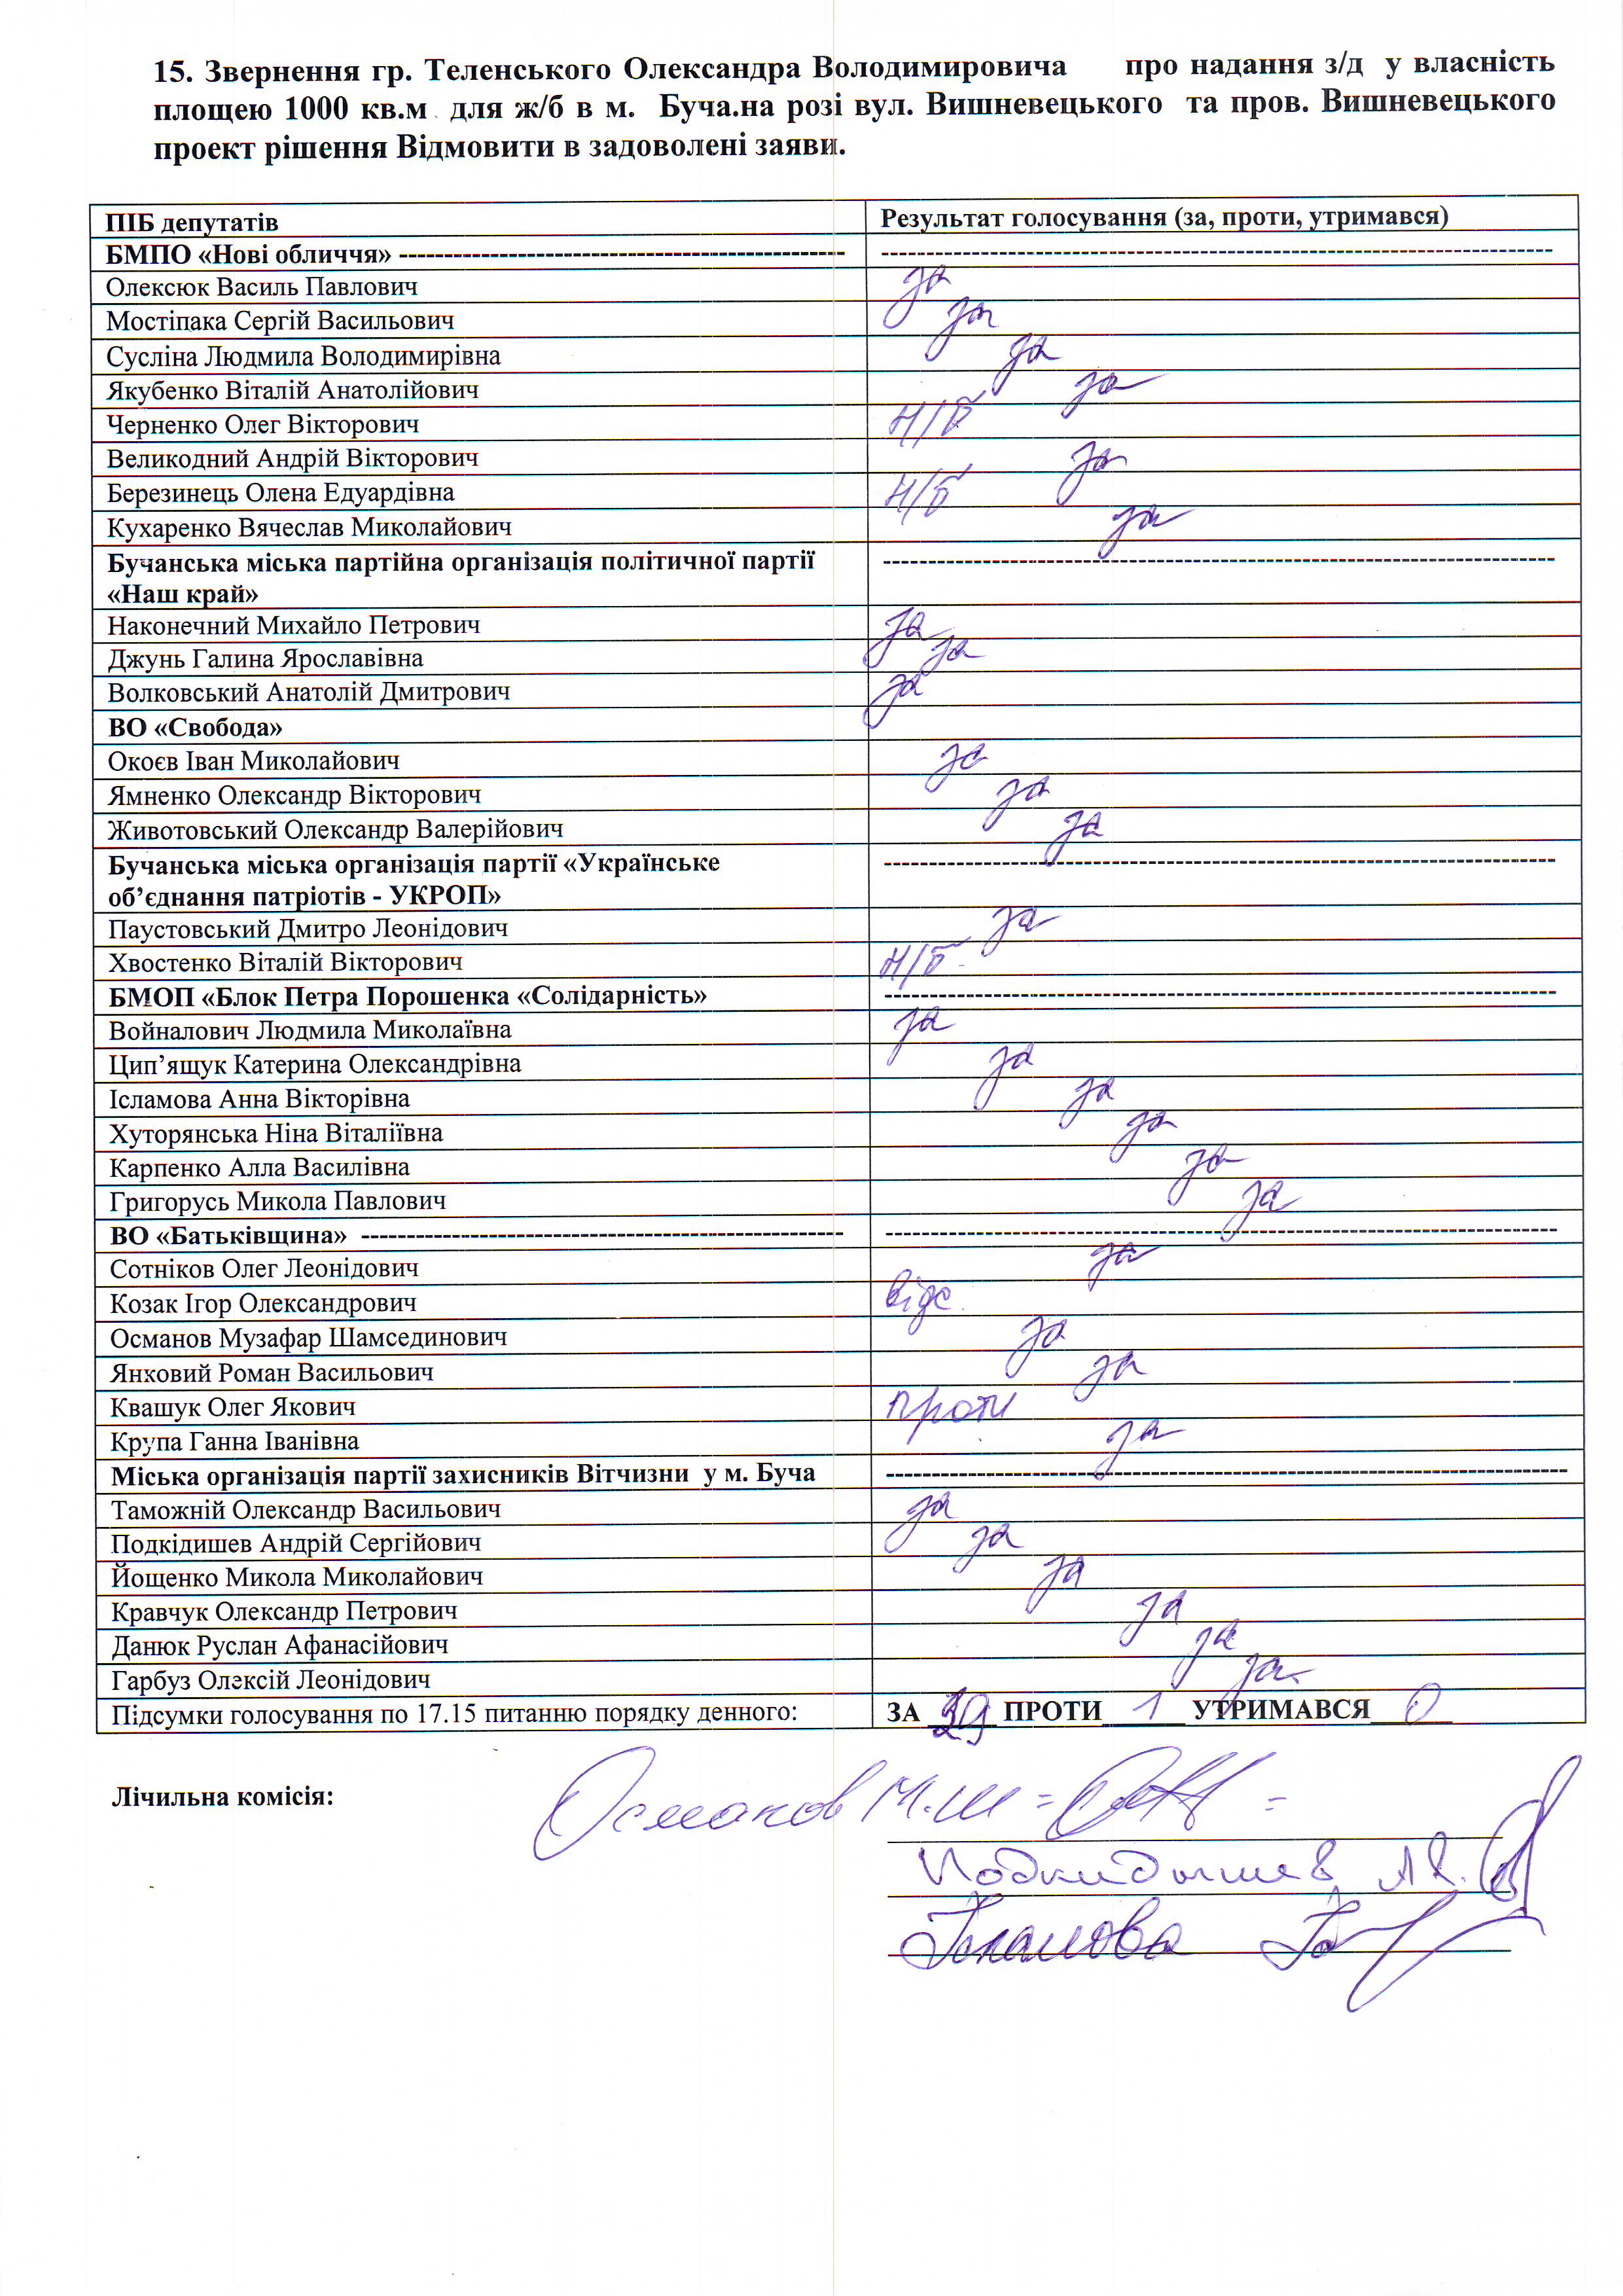 15. Звернення гр. Теленського Олександра Володимировича про надання з/д у власність
площею 1000 кв.м для ж/б в м. Буча.на розі вул. Вишневецького та пров. Вишневецького
проект рішення Відмовити в задоволені заяви.
ПІБ депутатів Результат голосування (за, проти, утримався)
БМПО «Нові обличчя» ------------------------------------------------ ------------------------------------------------------------------------
Олексюк Василь Павлович за
Мостіпака Сергій Васильович за
Сусліна Людмила Володимирівна за
Якубенко Віталій Анатолійович за
Черненко Олег Вікторович н/б
Великодний Андрій Вікторович за
Березинець Олена Едуардівна н/б
Кухаренко Вячеслав Миколайович за
Бучанська міська партійна організація політичної партії ------------------------------------------------------------------------
«Наш край»
Наконечний Михайло Петрович за
Джунь Галина Ярославівна за
Волковський Анатолій Дмитрович за
ВО «Свобода»
Окоєв Іван Миколайович за
Ямненко Олександр Вікторович за
Животовський Олександр Валерійович за
Бучанська міська організація партії «Українське ------------------------------------------------------------------------
об’єднання патріотів - УКРОП»
Паустовський Дмитро Леонідович за
Хвостенко Віталій Вікторович н/б
БМОП «Блок Петра Порошенка «Солідарність» ------------------------------------------------------------------------
Войналович Людмила Миколаївна за
Цип’ящук Катерина Олександрівна за
Ісламова Анна Вікторівна за
Хуторянська Ніна Віталіївна за
Карпенко Алла Василівна за
Григорусь Микола Павлович за
ВО «Батьківщина» ---------------------------------------------------- ------------------------------------------------------------------------
Сотніков Олег Леонідович за
Козак Ігор Олександрович відс
Османов Музафар Шамсединович за
Янковий Роман Васильович за
Квашук Олег Якович проти
Крупа Ганна Іванівна за
Міська організація партії захисників Вітчизни у м. Буча -------------------------------------------------------------------------
Таможній Олександр Васильович за
Подкідишев Андрій Сергійович за
Йощенко Микола Миколайович за
Кравчук Олександр Петрович за
Данюк Руслан Афанасійович за
Гарбуз Олексій Леонідович за
Підсумки голосування по 17.15 питанню порядку денного: ЗА ПРОТИ 1 УТРИМАВСЯ 0
Лічильна комісія: Османов М.Ш
Подкидышев
Ісламова